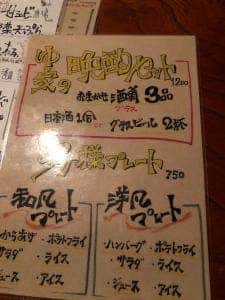 晩酌セット
1200
おまかせ 酒肴 3品
日本酒 1合 or グラスビール 2杯
お子様プレート
750
和風プレート
洋風プレート
からあげ・ポテトフライ
サラダ・ライス
ジュース・アイス
ハンバーグ・ポテトフライ
サラダ・ライス
・ジュース・アイス